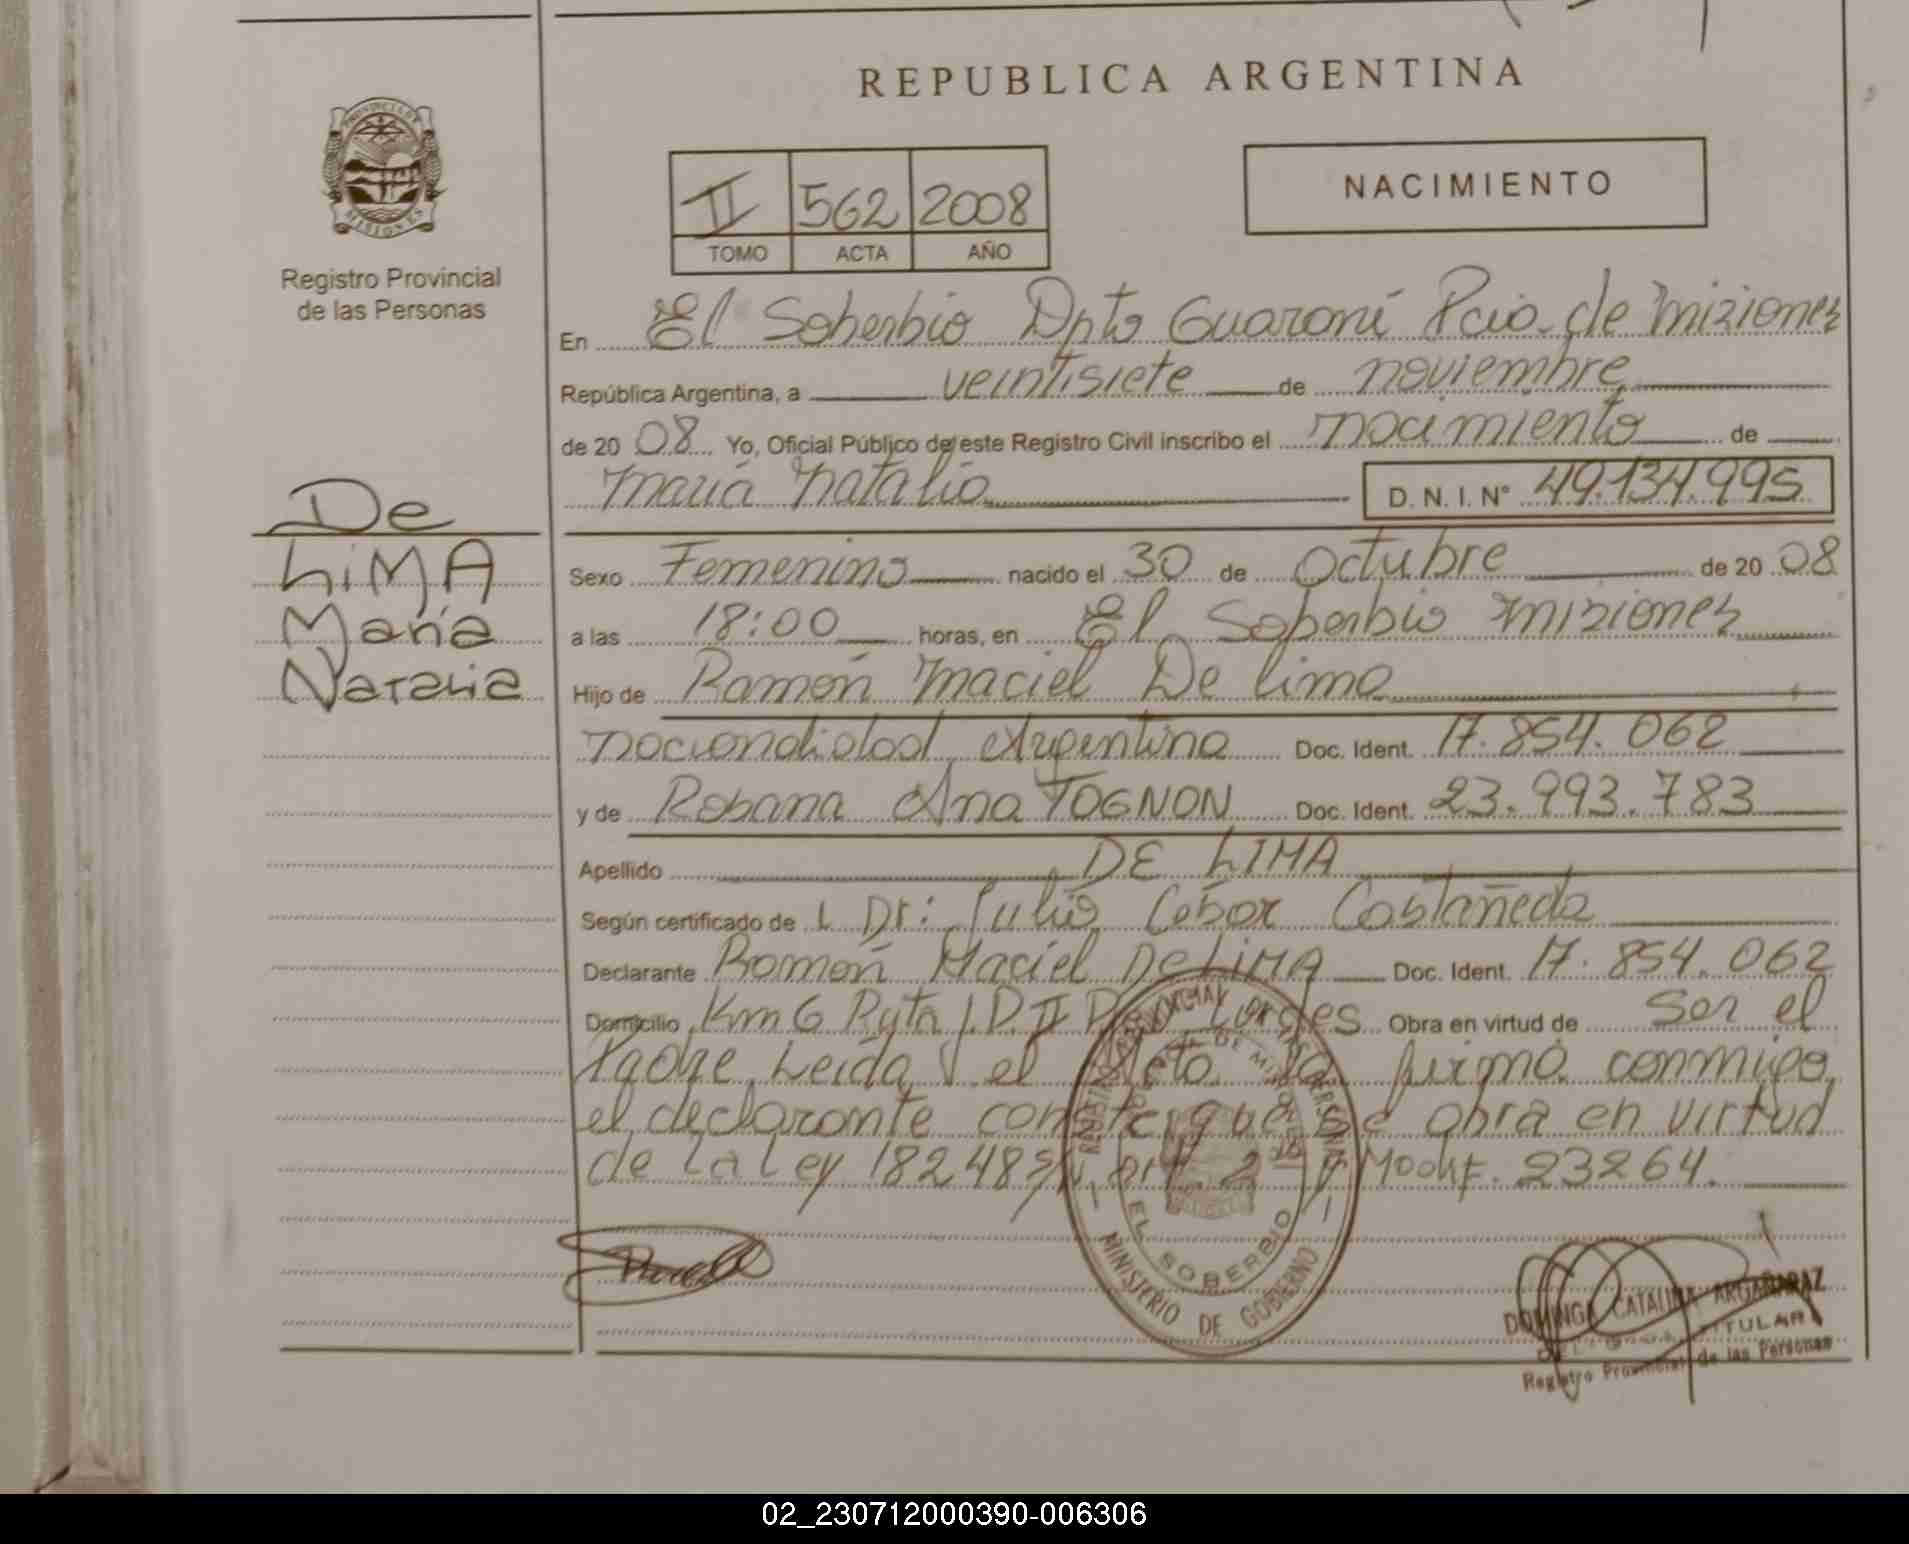 REPUBLICA ARGENTINA
PROVINCIA DE
MISIONES
Registro Provincial
de las Personas
II 562 2008
TOMO ACTA AÑO
NACIMIENTO
En El Soberbio Dpto Guaraní Pcia. de Misiones
República Argentina, a veintisiete de noviembre
de 20 08 Yo, Oficial Público de este Registro Civil inscribo el nacimiento de
María Natalia D. N. I. N° 49.134.995
De
LiMA
María
Natalia
Sexo Femenino nacido el 30 de Octubre de 20 08
a las 18:00 horas, en El Soberbio Misiones
Hijo de Ramón Maciel De lima
nacionalidad Argentina Doc. Ident. 17.854.062
y de Rosana Ana TOGNON Doc. Ident. 23.993.783
Apellido DE LIMA
Según certificado de L Dr: Julio César Castañeda
Declarante Ramón Maciel De LiMA Doc. Ident. 17.854.062
Domicilio Km 6 Ruta Obra en virtud de Ser el
Padre Leída el Acta la firma conmigo
el declarante conste que se obra en virtud
de la Ley 18248 art. 2 y Modif. 23264.
REGISTRO PROVINCIAL DE LAS PERSONAS
PROVINCIA DE MISIONES
EL SOBERBIO
MINISTERIO DE GOBIERNO
DOMINGA CATALINA ARGAÑARAZ
TITULAR
Registro Provincial de las Personas
02_230712000390-006306